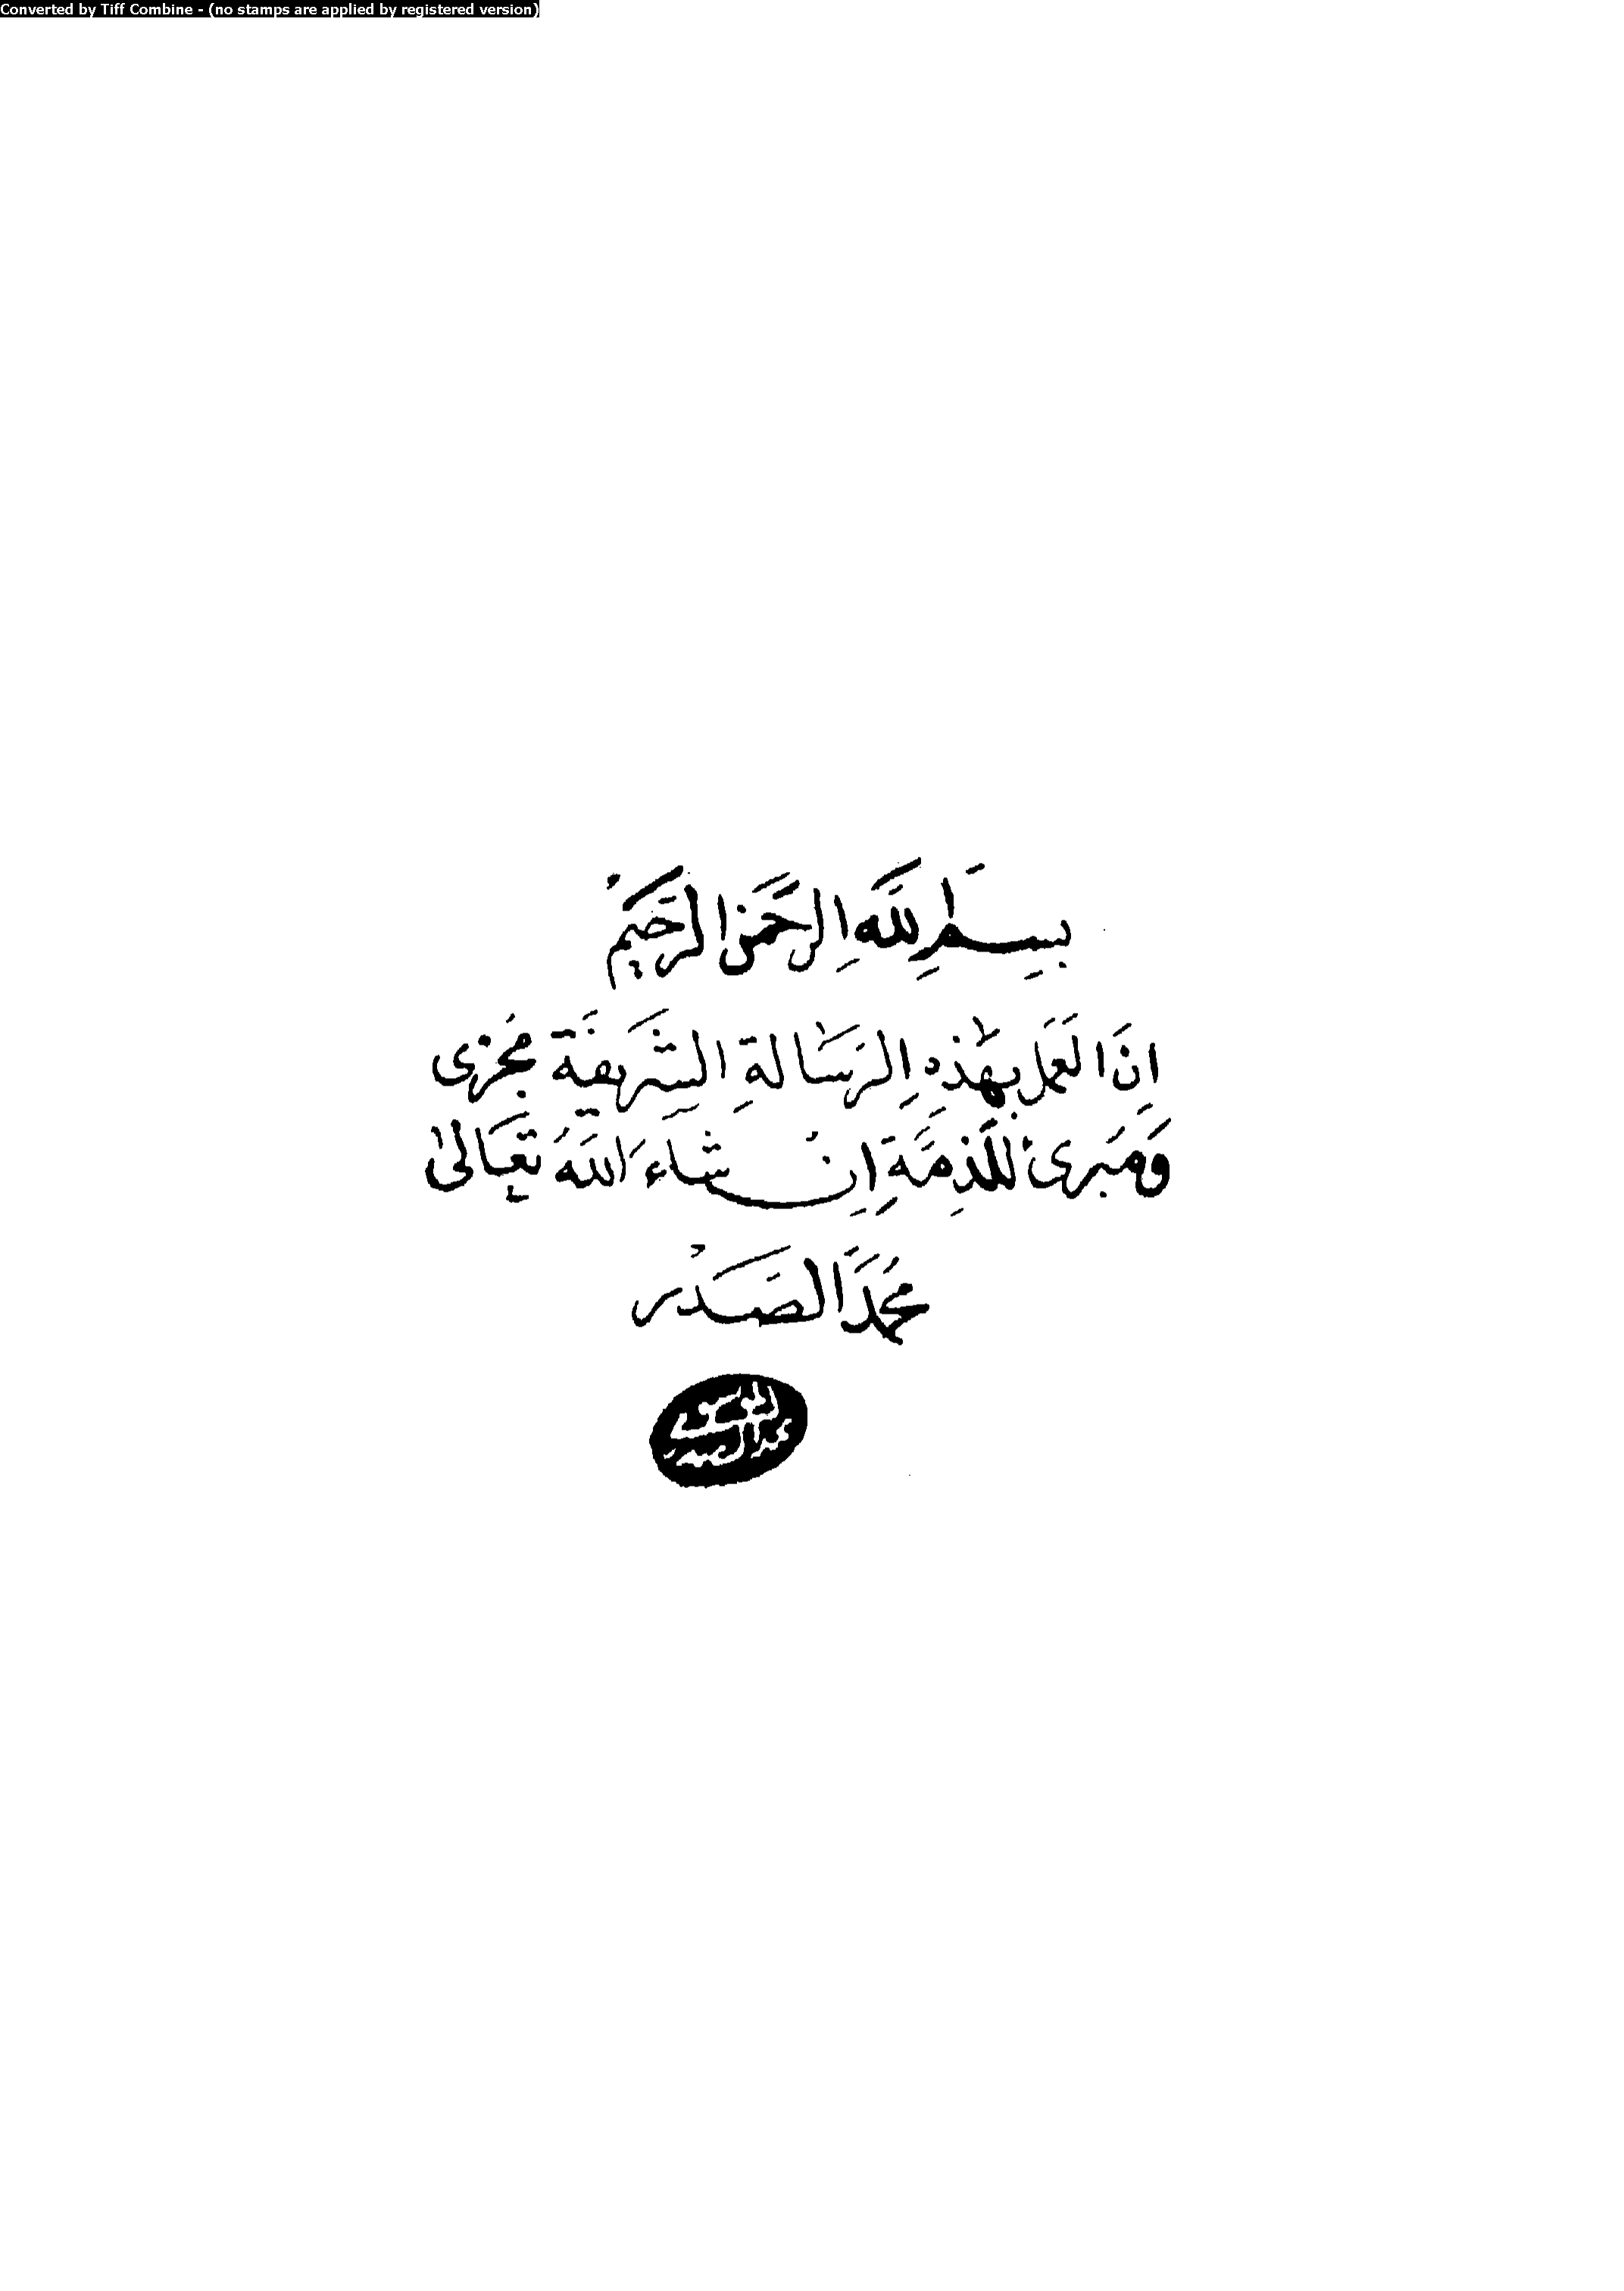 Converted by Tiff Combine - (no stamps are applied by registered version)
بِسمِ اللهِ الرحمن الرحيم
ان العمل بهذهِ الرسالةِ الشريفة مجزى
ومبرئ للذمةِ إن شاءَ الله تعالى
محمد الصدر